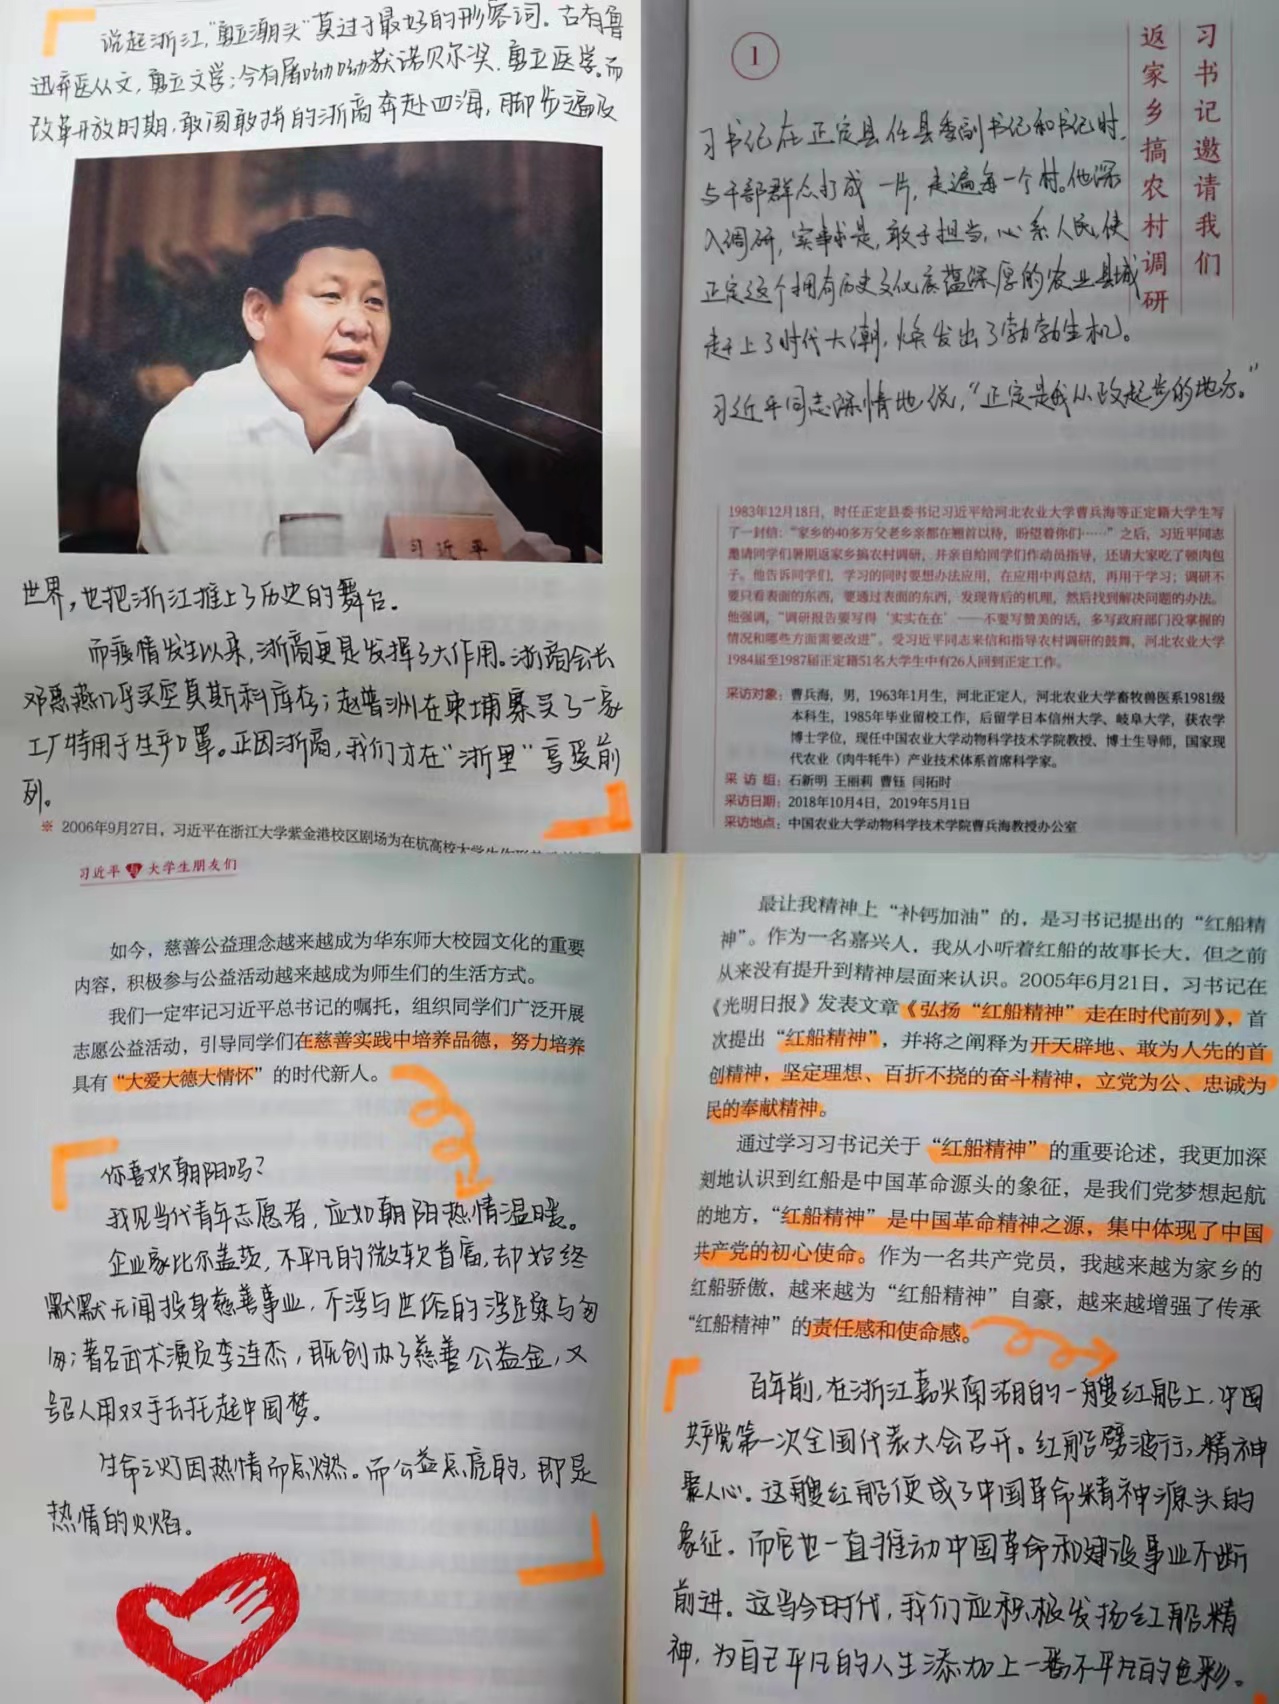 说起浙江，“勇立潮头”莫过于最好的形容词。古有鲁
迅弃医从文，勇立文学；今有屠呦呦获诺贝尔奖，勇立医学。而
改革开放时期，敢闯敢拼的浙商奔赴四海，脚步遍及
习近平
世界，也把浙江推上了历史的舞台。
而疫情发生以来，浙商更是发挥了大作用。浙商会长
邓惠燕几乎买空莫斯科库存；赵普洲在柬埔寨买了一家
工厂特用于生产口罩。正因浙商，我们才在“浙里”享受前
列。
※ 2006年9月27日，习近平在浙江大学紫金港校区剧场为在杭高校大学生作形
1
习书记邀请我们
返家乡搞农村调研
习书记在正定县任县委副书记和书记时，
与干部群众打成一片，走遍每一个村。他深
入调研，实事求是，敢于担当，心系人民，使
正定这个拥有历史文化底蕴深厚的农业县城
赶上了时代大潮，焕发出了勃勃生机。
习近平同志深情地说，“正定是我从政起步的地方。”
1983年12月18日，时任正定县委书记习近平给河北农业大学曹兵海等正定籍大学生写
了一封信：“家乡的40多万父老乡亲都在翘首以待，盼望着你们……”之后，习近平同志
邀请同学们暑期返家乡搞农村调研，并亲自给同学们作动员指导，还请大家吃了顿肉包
子。他告诉同学们，学习的同时要想办法应用，在应用中再总结，再用于学习；调研不
要只看表面的东西，要通过表面的东西，发现背后的机理，然后找到解决问题的办法。
他强调，“调研报告要写得‘实实在在’——不要写赞美的话，多写政府部门没掌握的
情况和哪些方面需要改进”。受习近平同志来信和指导农村调研的鼓舞，河北农业大学
1984届至1987届正定籍51名大学生中有26人回到正定工作。
采访对象：曹兵海，男，1963年1月生，河北正定人，河北农业大学畜牧兽医系1981级
本科生，1985年毕业留校工作，后留学日本信州大学、岐阜大学，获农学
博士学位，现任中国农业大学动物科学技术学院教授、博士生导师，国家现
代农业（肉牛牦牛）产业技术体系首席科学家。
采 访 组：石新明 王丽莉 曹钰 闫拓时
采访日期：2018年10月4日，2019年5月1日
采访地点：中国农业大学动物科学技术学院曹兵海教授办公室
习近平与大学生朋友们
如今，慈善公益理念越来越成为华东师大校园文化的重要
内容，积极参与公益活动越来越成为师生们的生活方式。
我们一定牢记习近平总书记的嘱托，组织同学们广泛开展
志愿公益活动，引导同学们在慈善实践中培养品德，努力培养
具有“大爱大德大情怀”的时代新人。
你喜欢朝阳吗？
我见当代青年志愿者，应如朝阳热情温暖。
企业家比尔盖茨，不平凡的微软首富，却始终
默默无闻投身慈善事业，不浮与世俗的浮躁与匆
匆；著名武术演员李连杰，既创办了慈善公益金，又
号召人用双手去托起中国梦。
生命之灯因热情而点燃。而公益点亮的，即是
热情的火焰。
最让我精神上“补钙加油”的，是习书记提出的“红船精
神”。作为一名嘉兴人，我从小听着红船的故事长大，但之前
从来没有提升到精神层面来认识。2005年6月21日，习书记在
《光明日报》发表文章《弘扬“红船精神”走在时代前列》，首
次提出“红船精神”，并将之阐释为开天辟地、敢为人先的首
创精神，坚定理想、百折不挠的奋斗精神，立党为公、忠诚为
民的奉献精神。
通过学习习书记关于“红船精神”的重要论述，我更加深
刻地认识到红船是中国革命源头的象征，是我们党梦想起航
的地方，“红船精神”是中国革命精神之源，集中体现了中国
共产党的初心使命。作为一名共产党员，我越来越为家乡的
红船骄傲，越来越为“红船精神”自豪，越来越增强了传承
“红船精神”的责任感和使命感。
百年前，在浙江嘉兴南湖的一艘红船上，中国
共产党第一次全国代表大会召开。红船劈波行，精神
聚人心。这艘红船便成了中国革命精神源头的
象征。而它也一直推动中国革命和建设事业不断
前进。这当今时代，我们应积极发扬红船精
神，为自己平凡的人生添加上一番不平凡的色彩。